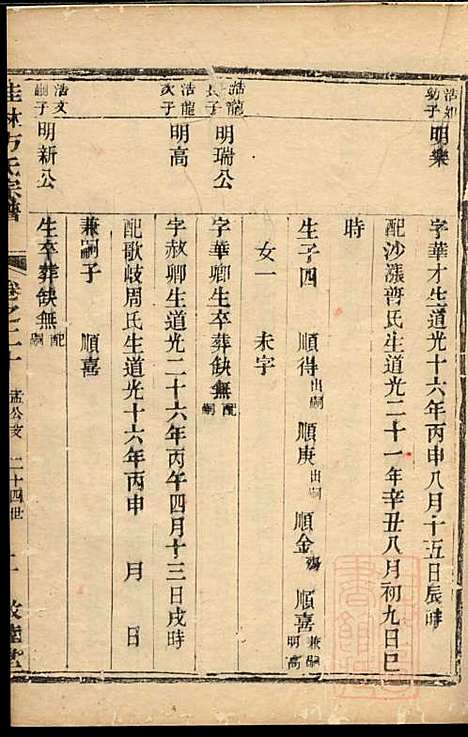 浩如
幼子
明樂
字華才生道光十六年丙申八月十五日辰時
配沙漲喬氏生道光二十一年辛丑八月初九日巳
時
生子四 順得出嗣 順庚出嗣 順金 順喜兼嗣明高
女一 未字
浩龍
長子
明瑞公
字華卿生卒葬缺無配嗣
浩龍
次子
明高
字赦卿生道光二十六年丙午四月十三日戌時
配歌岐周氏生道光十六年丙申 月 日
兼嗣子 順喜
浩文
嗣子
明新公
生卒葬缺無配嗣
桂林方氏宗譜
卷之二十
孟公支 二十四世